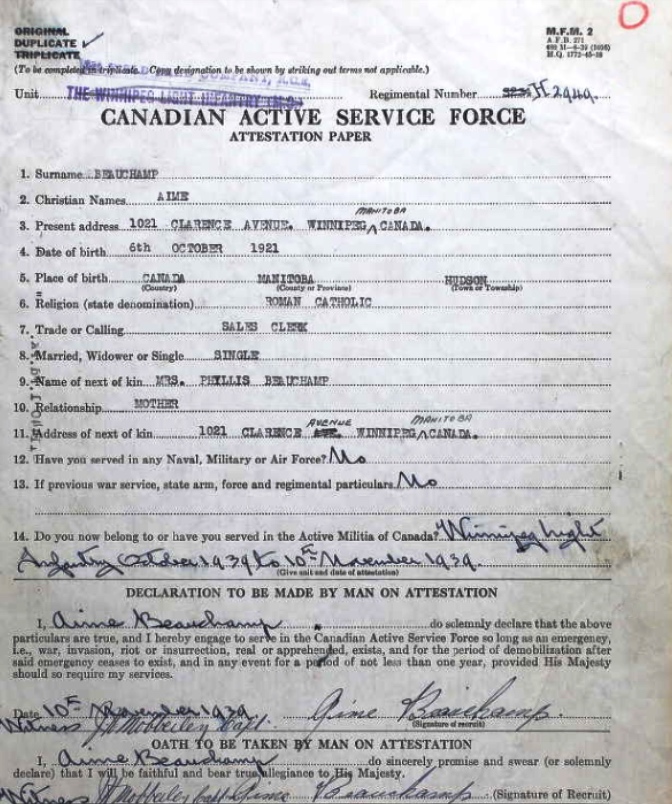 ORIGINAL
DUPLICATE ✓
TRIPLICATE
M.F.M. 2
A.F.B. 271
(To be completed in triplicate. Copy designation to be shown by striking out terms not applicable.)
Unit THE WINNIPEG LIGHT INFANTRY Regimental Number H 2949.
CANADIAN ACTIVE SERVICE FORCE
ATTESTATION PAPER
1. Surname BEAUCHAMP
2. Christian Names AIME
MANITOBA
3. Present address 1021 CLARENCE AVENUE. WINNIPEG ^ CANADA.
4. Date of birth 6th OCTOBER 1921
5. Place of birth CANADA MANITOBA HUDSON
(Country) (County or Province) (Town or Township)
6. Religion (state denomination) ROMAN CATHOLIC
7. Trade or Calling SALES CLERK
8. Married, Widower or Single SINGLE
9. Name of next of kin MRS. PHYLLIS BEAUCHAMP
10. Relationship MOTHER
AVENUE MANITOBA
11. Address of next of kin 1021 CLARENCE WINNIPEG ^ CANADA.
12. Have you served in any Naval, Military or Air Force? No
13. If previous war service, state arm, force and regimental particulars No
14. Do you now belong to or have you served in the Active Militia of Canada? Winnipeg Light
Infantry October 1939 to 10th November 1939.
(Give unit and date of attestation)
DECLARATION TO BE MADE BY MAN ON ATTESTATION
I, Aime Beauchamp do solemnly declare that the above
particulars are true, and I hereby engage to serve in the Canadian Active Service Force so long as an emergency,
i.e., war, invasion, riot or insurrection, real or apprehended, exists, and for the period of demobilization after
said emergency ceases to exist, and in any event for a period of not less than one year, provided His Majesty
should so require my services.
Date 10th November 1939. Aime Beauchamp.
Witness Capt. (Signature of recruit)
OATH TO BE TAKEN BY MAN ON ATTESTATION
I, Aime Beauchamp do sincerely promise and swear (or solemnly
declare) that I will be faithful and bear true allegiance to His Majesty.
Witness Capt Aime Beauchamp (Signature of Recruit)